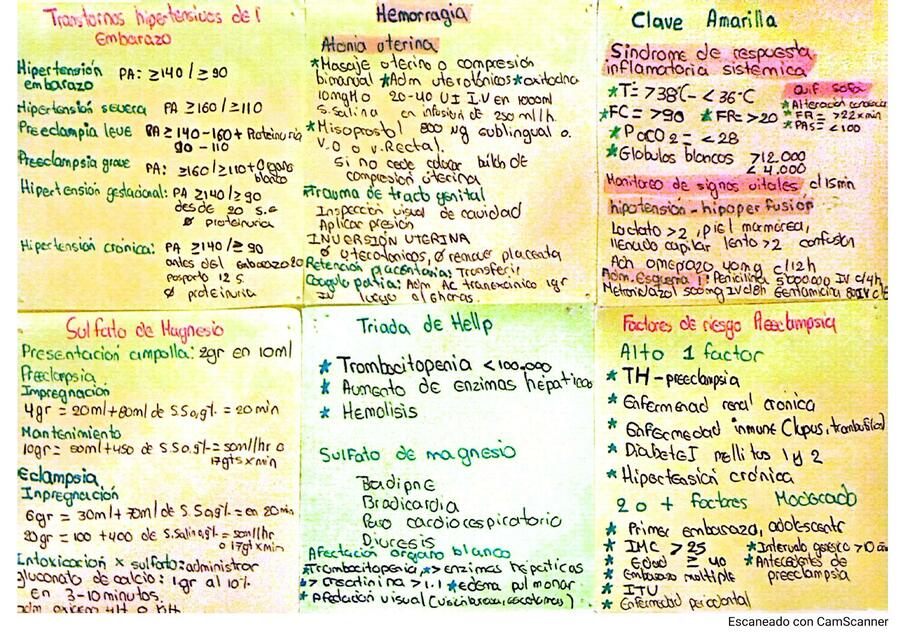 Transtornos hipertensivos del
Embarazo
Hipertensión PA: ≥140/≥90
embarazo
Hipertensión severa PA ≥160/≥110
Preeclampsia leve PA ≥140-160+ Proteinuria
90-110
Preeclampsia grave PA: ≥160/≥110+Organo
blanco
Hipertensión gestacional: PA ≥140/≥90
desde 20 s.G
Ø proteinuria
Hipertensión crónica: PA ≥140/≥90
antes del embarazo 20
posparto 12 s.
Ø proteinuria
Hemorragia
Atonia uterina
*Masaje uterino o compresión
bimanual *Adm uterotónicos *oxitocina
20-40 UI I.V en 1000ml
s.salina en infusión de 250 ml/h.
*Misoprostol 800 ug sublingual o
V.O o v.Rectal.
Si no cede colocar
compresion uterina
*Trauma de tracto genital
Inspección visual de cavidad
Aplicar presión
INVERSIÓN UTERINA
Ø uterotonicos, Ø remover placenta
Retención placentaria: Transferir
Coagulo patia: Adm Ac tranexánico 1gr
IV luego al 8horas.
Clave Amarilla
Síndrome de respuesta
inflamatoria sistémica
*T: >38°C - <36°C
*FC= >90 *FR= >20
*PaCO2 = <28
*Globulos blancos >12.000
<4.000
quif sofa
*Alteración
*FR= >22xmin
*PAS= <100
Monitoreo de signos vitales c/15min
hipotensión - hipoperfusión
Lactato >2, piel marmorea,
llenado capilar lento >2 confusión
Adm omeprazo 40mg c/12h
Adm. Esquema 1: Penicilina 5'000.000 IV c/4h
Metronidazol 500mg IV c/8h Gentamicina
Sulfato de Magnesio
Presentación ampolla: 2gr en 10ml
Preeclampsia
Impregnación
4gr = 20ml+80ml de S.S 0,9%. = 20min
Mantenimiento
10gr= 50ml+450 de S.S 0,9%= 50ml/hr o
17gts x min
Eclampsia
Inpregnación
6gr = 30ml + 70ml de S.S 0,9%= en 20min
20gr = 100 +400 de S.Salin 0,9%= 50ml/hr
o 17gt x min
Intoxicación x sulfato: administrar
gluconato de calcio: 1gr al 10%
en 3-10minutos.
Triada de Hellp
*Trombocitopenia <100.000
*Aumento de enzimas hépaticas
*Hemolisis
Sulfato de magnesio
Bradicardia
Paro cardiorespiratorio
Diuresis
Afectación organo blanco
*Trombocitopenia, *> enzimas hepaticas
*> creatinina >1.1 *edema pulmonar
*afectación visual
Factores de riesgo Preeclampsia
Alto 1 factor
*TH-preeclampsia
*Enfermedad renal crónica
*Enfermedad inmune (lupus, trombofilia)
*Diabetes mellitus 1 y 2
*Hipertensión crónica
2 o + factores Moderado
*Primer embarazo, adolescente
*IMC >25 *Intervalo genésico >10 año
*Edad ≥ 40 *Antecedentes de
*Embarazo multiple preeclampsia
*ITU
*Enfermedad periodontal
Escaneado con CamScanner